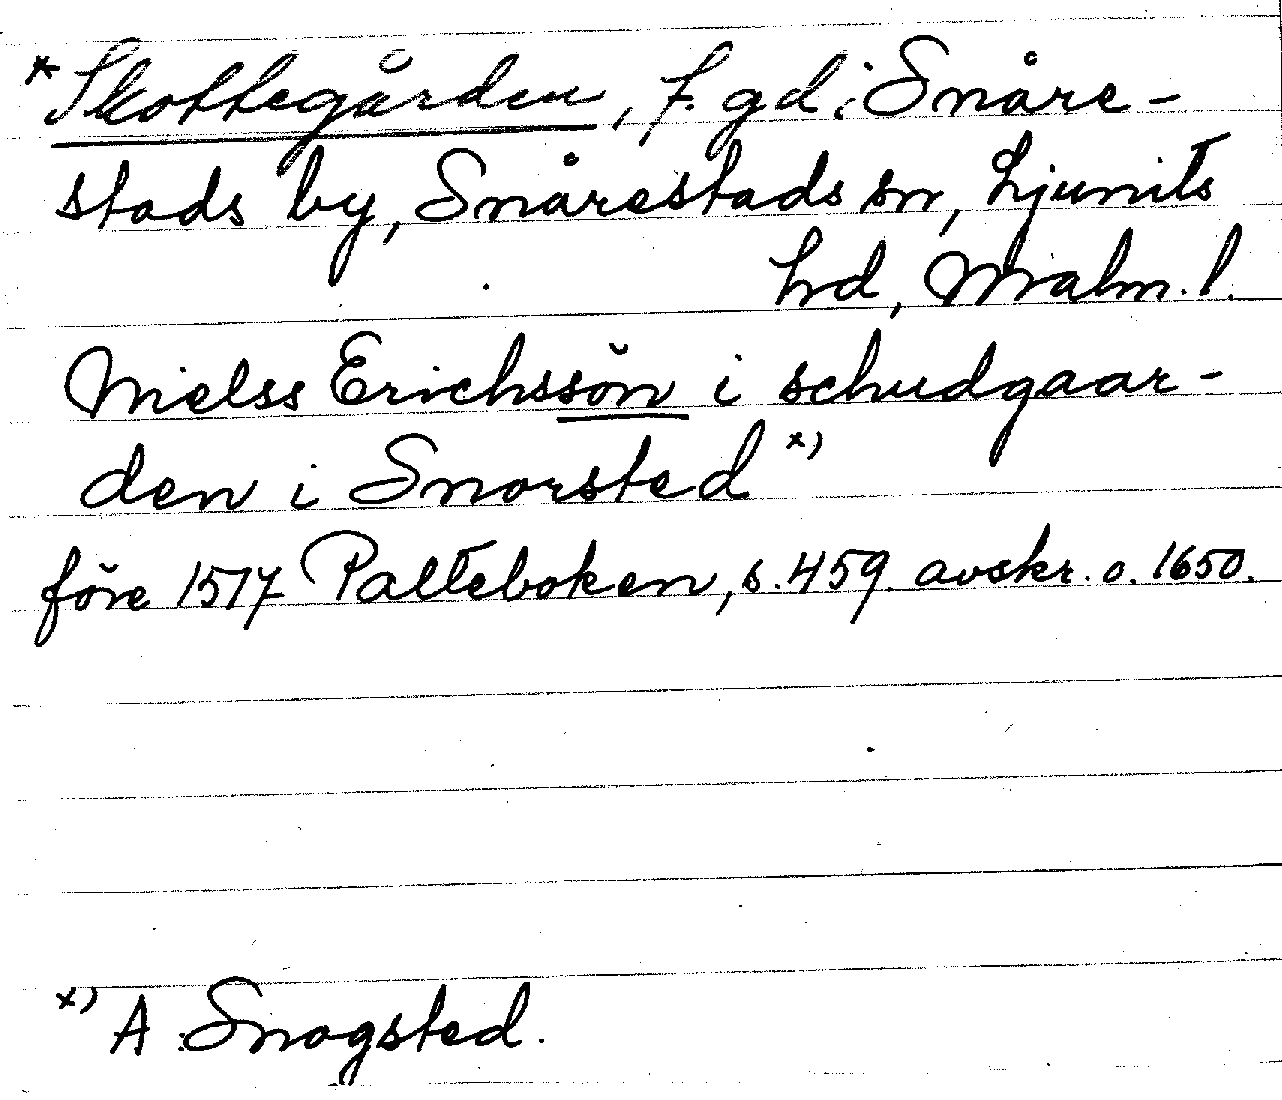 *Skottegården, f. gd i Snåre-
stads by, Snårestads sn, Ljunits
hd, Malm. l.
Nielss Erichssön i schudgaar-
den i Snorsted x)
före 1517 Palteboken, s. 459. avskr. o. 1650.
x) A Snogsted.